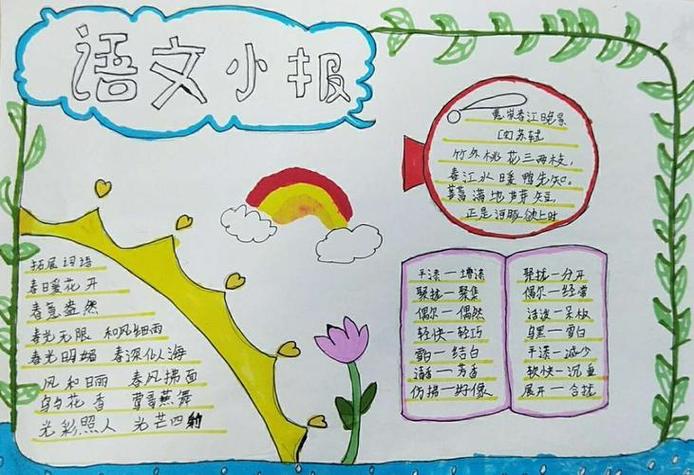 语文小报
拓展词语
春暖花开
春意盎然
春光无限 和风细雨
春光明媚 春深似海
风和日丽 春风拂面
鸟语花香 莺歌燕舞
光彩照人 光芒四射
惠崇春江晚景
[宋]苏轼
竹外桃花三两枝,
春江水暖鸭先知。
蒌蒿满地芦芽短,
正是河豚欲上时
聚拢—聚集
偶尔—偶然
轻快—轻巧
清香—芳香
仿拂—好像
聚拢—分开
偶尔—经常
活泼—呆板
乌黑—雪白
展开—合拢